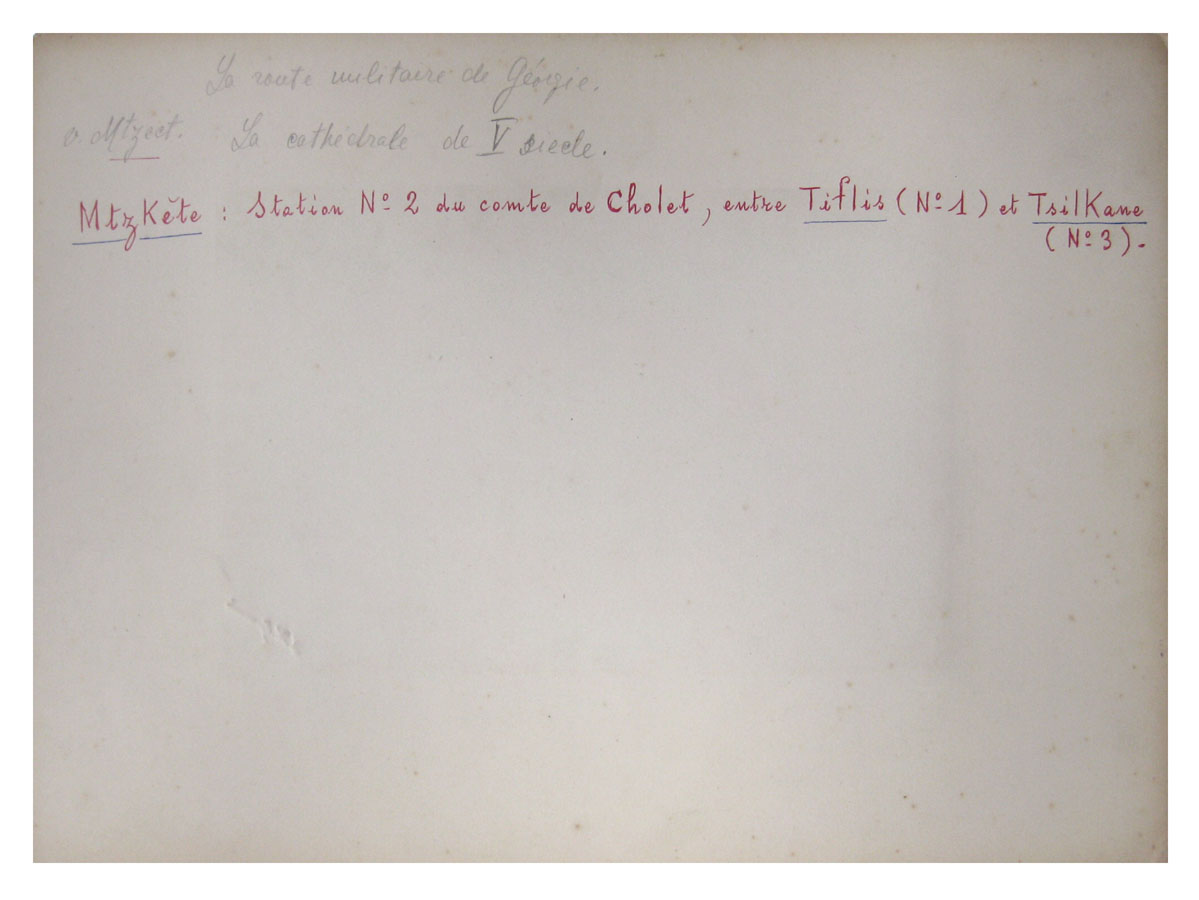 La route militaire de Géorgie.
v. Mtzect. La cathédrale de V siecle.
MtzKěte : Station Nº 2 du comte de Cholet, entre Tiflis (Nº 1) et TsilKane
(Nº 3).